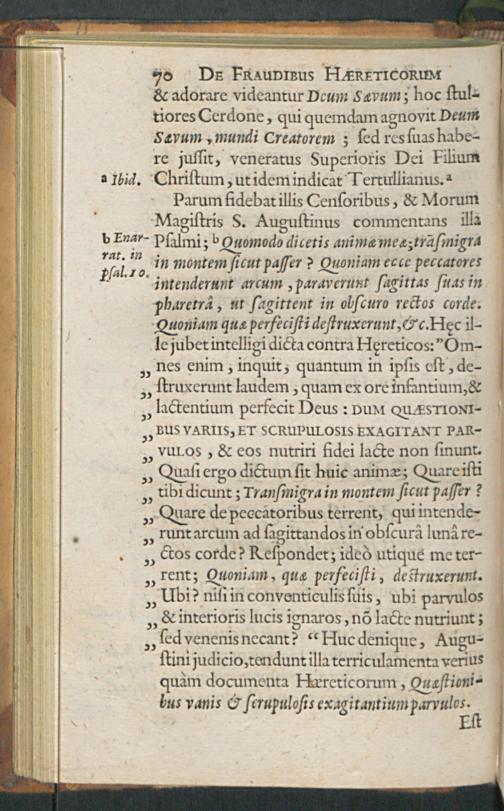 70 DE FRAUDIBUS HÆRETICORUM
& adorare videantur Deum Sævum; hoc stul-
tiores Cerdone, qui quemdam agnovit Deum
Sævum, mundi Creatorem ; sed res suas habe-
re jussit, veneratus Superioris Dei Filium
a Ibid. Christum, ut idem indicat Tertullianus.ª
Parum fidebat illis Censoribus, & Morum
Magistris S. Augustinus commentans illa
b Enar- Psalmi; ᵇ Quomodo dicetis animæ meæ; trāsmigra
rat. in in montem sicut passer ? Quoniam ecce peccatores
psal. 10. intenderunt arcum , paraverunt sagittas suas in
pharetrâ, ut sagittent in obscuro rectos corde.
Quoniam quæ perfecisti destruxerunt, &c. Hęc il-
le jubet intelligi dicta contra Hęreticos: ”Om-
„ nes enim , inquit, quantum in ipsis est , de-
„ struxerunt laudem , quam ex ore infantium, &
„ lactentium perfecit Deus : DUM QUÆSTIONI-
„ BUS VARIIS, ET SCRUPULOSIS EXAGITANT PAR-
„ VULOS , & eos nutriri fidei lacte non sinunt.
„ Quasi ergo dictum sit huic animæ; Quare isti
„ tibi dicunt ; Transmigra in montem sicut passer ?
„ Quare de peccatoribus terrent, qui intende-
„ runt arcum ad sagittandos in obscurâ lunâ re-
„ ctos corde ? Respondet; ideò utique me ter-
„ rent; Quoniam, quæ perfecisti, destruxerunt.
„ Ubi ? nisi in conventiculis suis, ubi parvulos
„ & interioris lucis ignaros, nō lacte nutriunt ;
„ sed venenis necant ? “ Huc denique, Augu-
stini judicio, tendunt illa terriculamenta verius
quàm documenta Hæreticorum , Quæstioni-
bus vanis & scrupulosis exagitantium parvulos.
Est